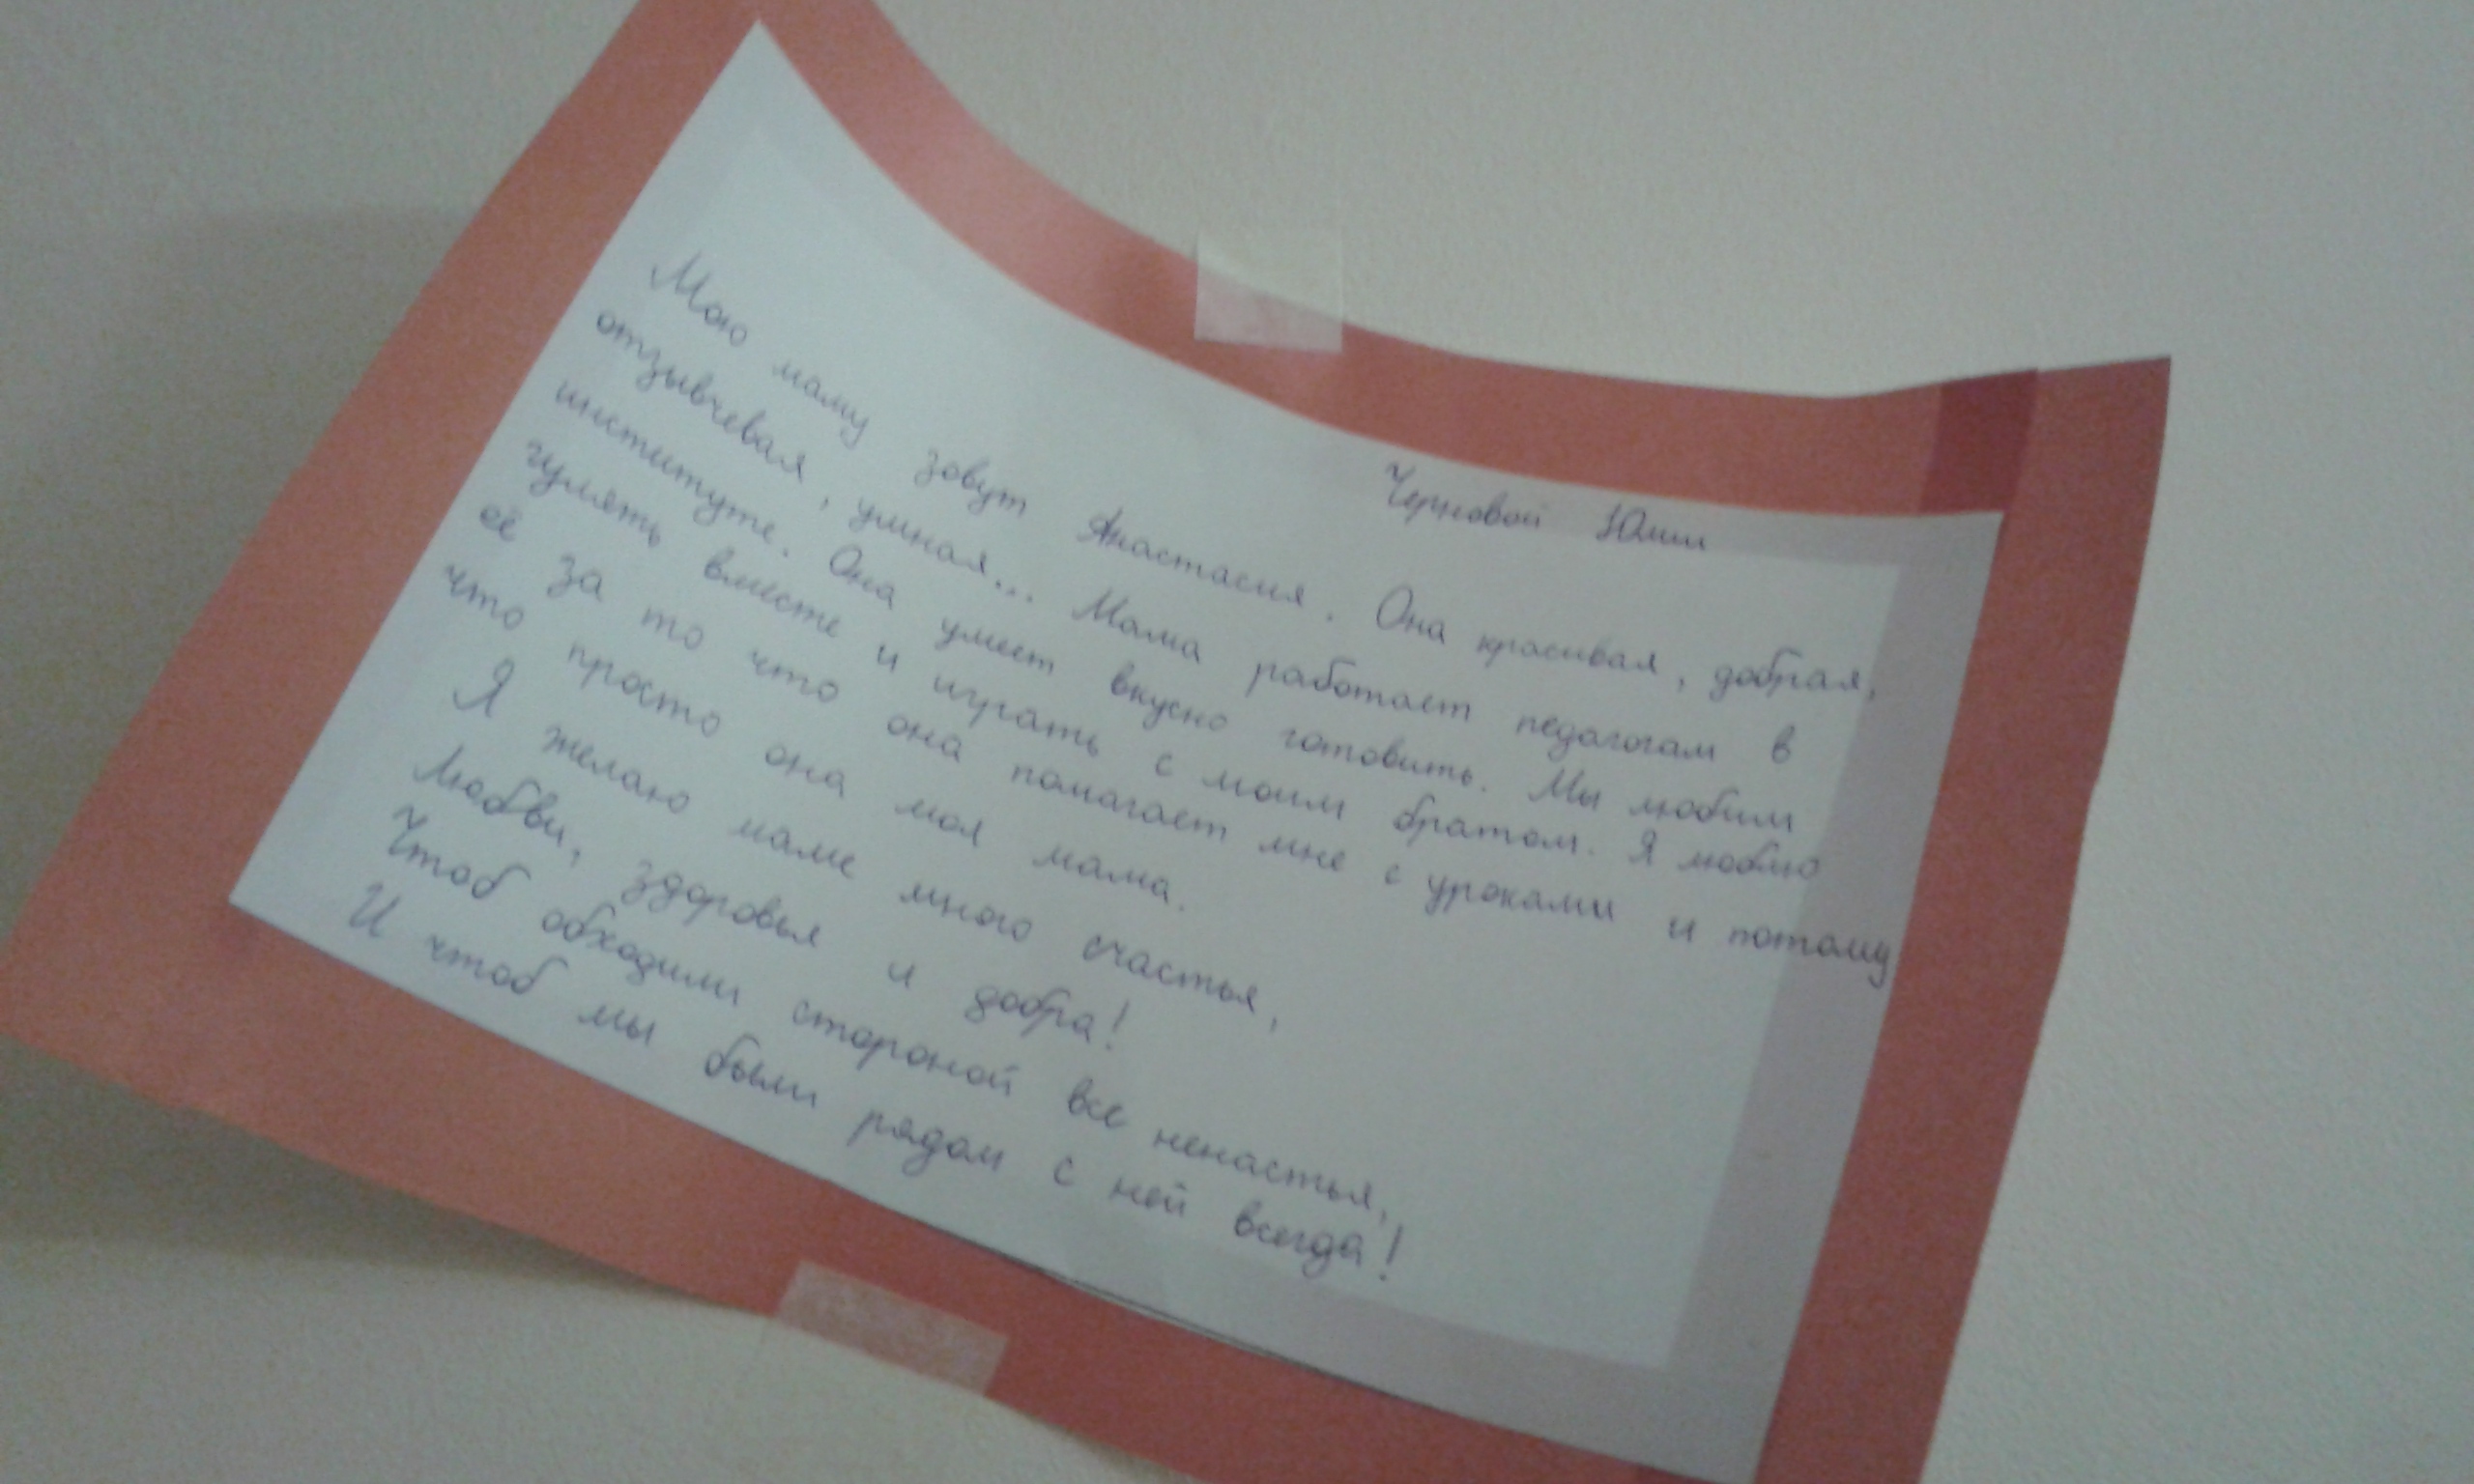 Черновой Юлии
Мою маму зовут Анастасия. Она красивая, добрая,
отзывчевая, умная... Мама работает педагогам в
институте. Она умеет вкусно готовить. Мы любим
гулять вместе и играть с моим братом. Я люблю
её за то что она помагает мне с уроками и потому
что просто она моя мама.
Я желаю маме много счастья,
Любви, здоровья и добра!
Чтоб обходили стороной все ненастья,
И чтоб мы были рядом с ней всегда!